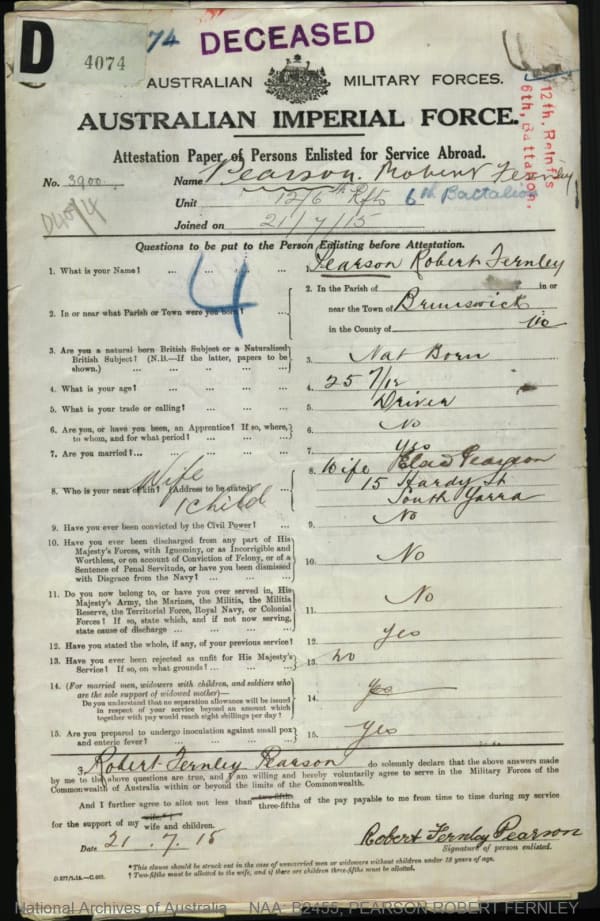 D
4074
74
DECEASED
AUSTRALIAN MILITARY FORCES.
AUSTRALIAN IMPERIAL FORCE.
12th. Reinfts
6th, Battalion.
Attestation Paper of Persons Enlisted for Service Abroad.
No. 3900. Name Pearson. Robert Fernley
Unit 12/6th Rfts 6th Battalion
Joined on 21/7/15
Questions to be put to the Person Enlisting before Attestation.
4
1. What is your Name? ... ... ... ... 1. Pearson Robert Fernley
2. In or near what Parish or Town were you born? 2. In the Parish of in or
near the Town of Brunswick
in the County of Vic
3. Are you a natural born British Subject or a Naturalised
British Subject? (N.B.—If the latter, papers to be
shown.) ... ... ... ... ... 3. Nat Born
4. What is your age? ... ... ... ... 4. 25 7/12
5. What is your trade or calling? ... ... ... 5. Driver
6. Are you, or have you been, an Apprentice? If so, where,
to whom, and for what period? ... ... ... 6. No
7. Are you married?... ... ... ... ... 7. Yes
8. Who is your next of kin? (Address to be stated) 8. Wife Pearson
15 Hardy St
South Yarra
Wife
1 child
9. Have you ever been convicted by the Civil Power? ... 9. No
10. Have you ever been discharged from any part of His
Majesty's Forces, with Ignominy, or as Incorrigible and
Worthless, or on account of Conviction of Felony, or of a
Sentence of Penal Servitude, or have you been dismissed
with Disgrace from the Navy? ... ... ... 10. No
11. Do you now belong to, or have you ever served in, His
Majesty's Army, the Marines, the Militia, the Militia
Reserve, the Territorial Force, Royal Navy, or Colonial
Forces? If so, state which, and if not now serving,
state cause of discharge ... ... ... ... 11. No
12. Have you stated the whole, if any, of your previous service? 12. Yes
13. Have you ever been rejected as unfit for His Majesty's
Service? If so, on what grounds? ... ... ... 13. No
14. (For married men, widowers with children, and soldiers who
are the sole support of widowed mother)—
Do you understand that no separation allowance will be issued
in respect of your service beyond an amount which
together with pay would reach eight shillings per day? 14. Yes
15. Are you prepared to undergo inoculation against small pox
and enteric fever? ... ... ... ... 15. Yes
I, Robert Fernley Pearson do solemnly declare that the above answers made
by me to the above questions are true, and I am willing and hereby voluntarily agree to serve in the Military Forces of the
Commonwealth of Australia within or beyond the limits of the Commonwealth.
And I further agree to allot not less than two-fifths three-fifths of the pay payable to me from time to time during my service
for the support of my wife wife and children.
Date 21. 7. 15 Robert Fernley Pearson
Signature of person enlisted.
* This clause should be struck out in the case of unmarried men or widowers without children under 18 years of age.
† Two-fifths must be allotted to the wife, and if there are children three-fifths must be allotted.
National Archives of Australia NAA: B2455, PEARSON ROBERT FERNLEY